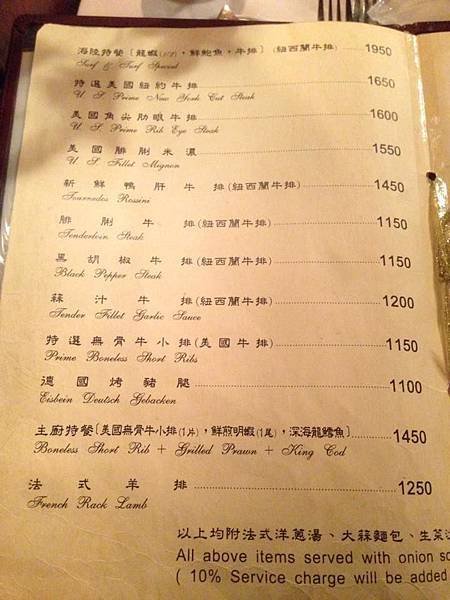 海陸特餐〔龍蝦(1/2)，鮮鮑魚，牛排〕(紐西蘭牛排) 1950
Surf & Turf Special
特選美國紐約牛排 1650
U. S. Prime New York Cut Steak
美國角尖肋眼牛排 1600
U. S. Prime Rib Eye Steak
美國腓脷米濃 1550
U. S. Fillet Mignon
新鮮鴨肝牛排(紐西蘭牛排) 1450
Tournedos Rossini
腓脷牛排(紐西蘭牛排) 1150
Tenderloin Steak
黑胡椒牛排(紐西蘭牛排) 1150
Black Pepper Steak
蒜汁牛排(紐西蘭牛排) 1200
Tender Fillet Garlic Sauce
特選無骨牛小排(美國牛排) 1150
Prime Boneless Short Ribs
德國烤豬腿 1100
Eisbein Deutsch Gebacken
主廚特餐〔美國無骨牛小排(1片)，鮮煎明蝦(1尾)，深海龍鱈魚〕 1450
Boneless Short Rib + Grilled Prawn + King Cod
法式羊排 1250
French Rack Lamb
以上均附法式洋蔥湯、大蒜麵包、生菜
All above items served with onion
( 10% Service charge will be added